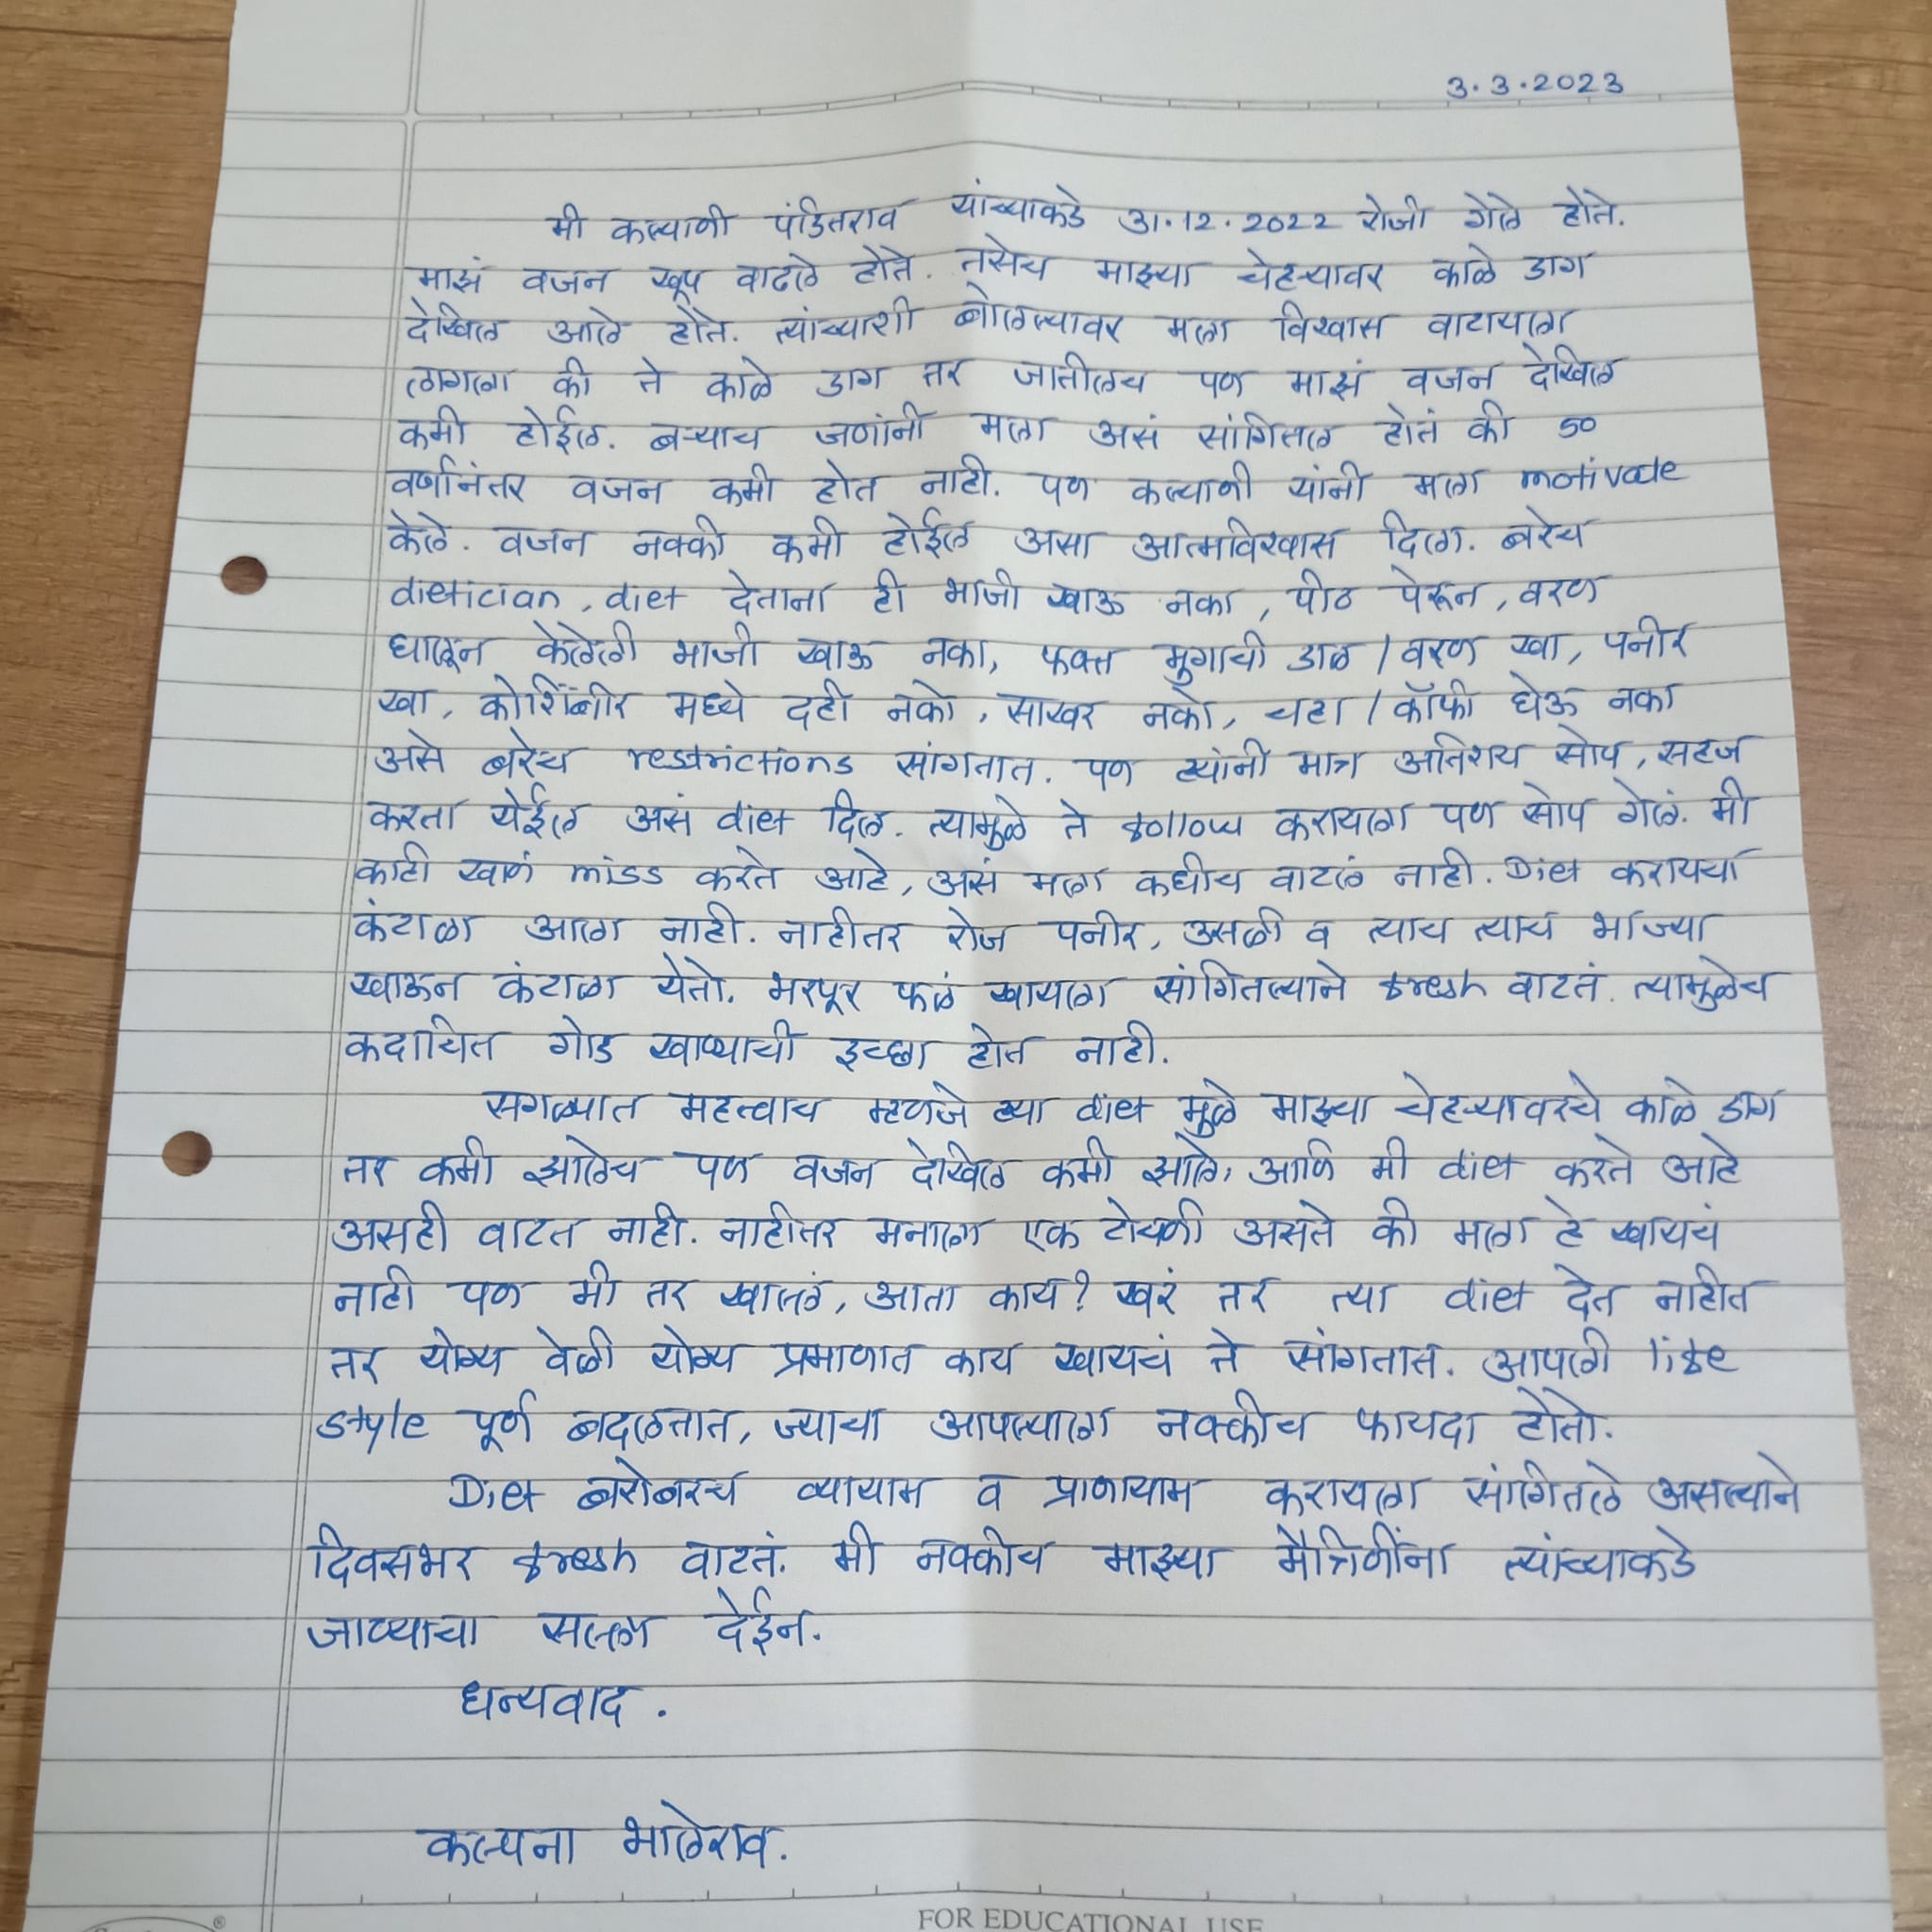 3.3.2023
मी कल्याणी पंडितराव यांच्याकडे 31.12.2022 रोजी गेले होते.
माझं वजन खूप वाढले होते. तसेच माझ्या चेहऱ्यावर काळे डाग
देखिल आले होते. त्यांच्याशी बोलल्यावर मला विश्वास वाटायला
लागला की ते काळे डाग तर जातीलच पण माझं वजन देखिल
कमी होईल. बऱ्याच जणांनी मला असं सांगितल होतं की 50
वर्षानंतर वजन कमी होत नाही. पण कल्याणी यांनी मला motivate
केले. वजन नक्की कमी होईल असा आत्मविश्वास दिला. बरेच
dietician, diet देताना ही भाजी खाऊ नका, पीठ पेरून, वरण
घालून केलेली भाजी खाऊ नका, फक्त मुगाची डाळ / वरण खा, पनीर
खा, कोशिंबीर मध्ये दही नको, साखर नको, चहा / कॉफी घेऊ नका
असे बरेच restrictions सांगतात. पण ह्यांनी मात्र अतिशय सोप, सहज
करता येईल असं diet दिल. त्यामुळे ते follow करायला पण सोप गेलं. मी
काही खाणं miss करते आहे, असं मला कधीच वाटलं नाही. Diet करायचा
कंटाळा आला नाही. नाहीतर रोज पनीर, उसळी व त्याच त्याच भाज्या
खाऊन कंटाळा येतो. भरपूर फळं खायला सांगितल्याने fresh वाटतं. त्यामुळेच
कदाचित गोड खाण्याची इच्छा होत नाही.
सगळ्यात महत्वाच म्हणजे ह्या diet मुळे माझ्या चेहऱ्यावरचे काळे डाग
तर कमी झालेच पण वजन देखिल कमी झाले, आणि मी diet करते आहे
असही वाटत नाही. नाहीतर मनाला एक टोचणी असते की मला हे खायचं
नाही पण मी तर खाल्लं, आता काय? खरं तर त्या diet देत नाहीत
तर योग्य वेळी योग्य प्रमाणात काय खायचं ते सांगतात. आपली life
style पूर्ण बदलतात, ज्याचा आपल्याला नक्कीच फायदा होतो.
Diet बरोबरच व्यायाम व प्राणायाम करायला सांगितले असल्याने
दिवसभर fresh वाटतं. मी नक्कीच माझ्या मैत्रिणींना त्यांच्याकडे
जाण्याचा सल्ला देईन.
धन्यवाद.
कल्पना भालेराव.
FOR EDUCATIONAL USE